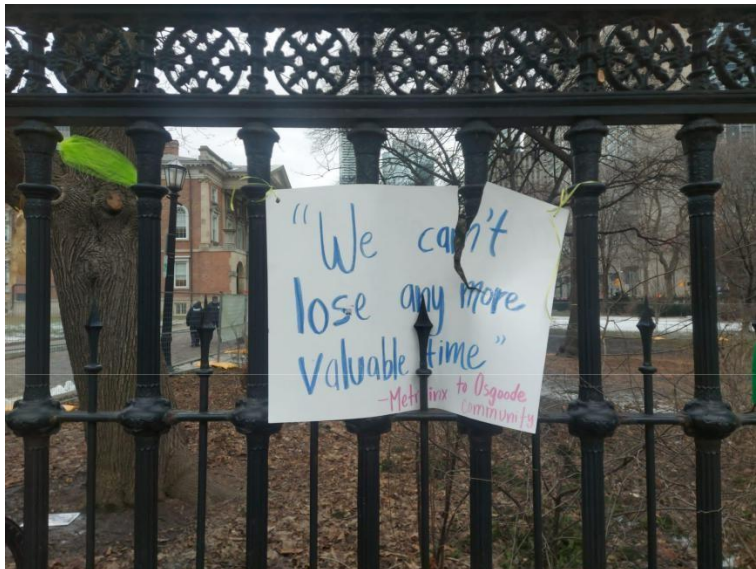 "We can't
lose any more
valuable time"
-Metrolinx to Osgoode
community